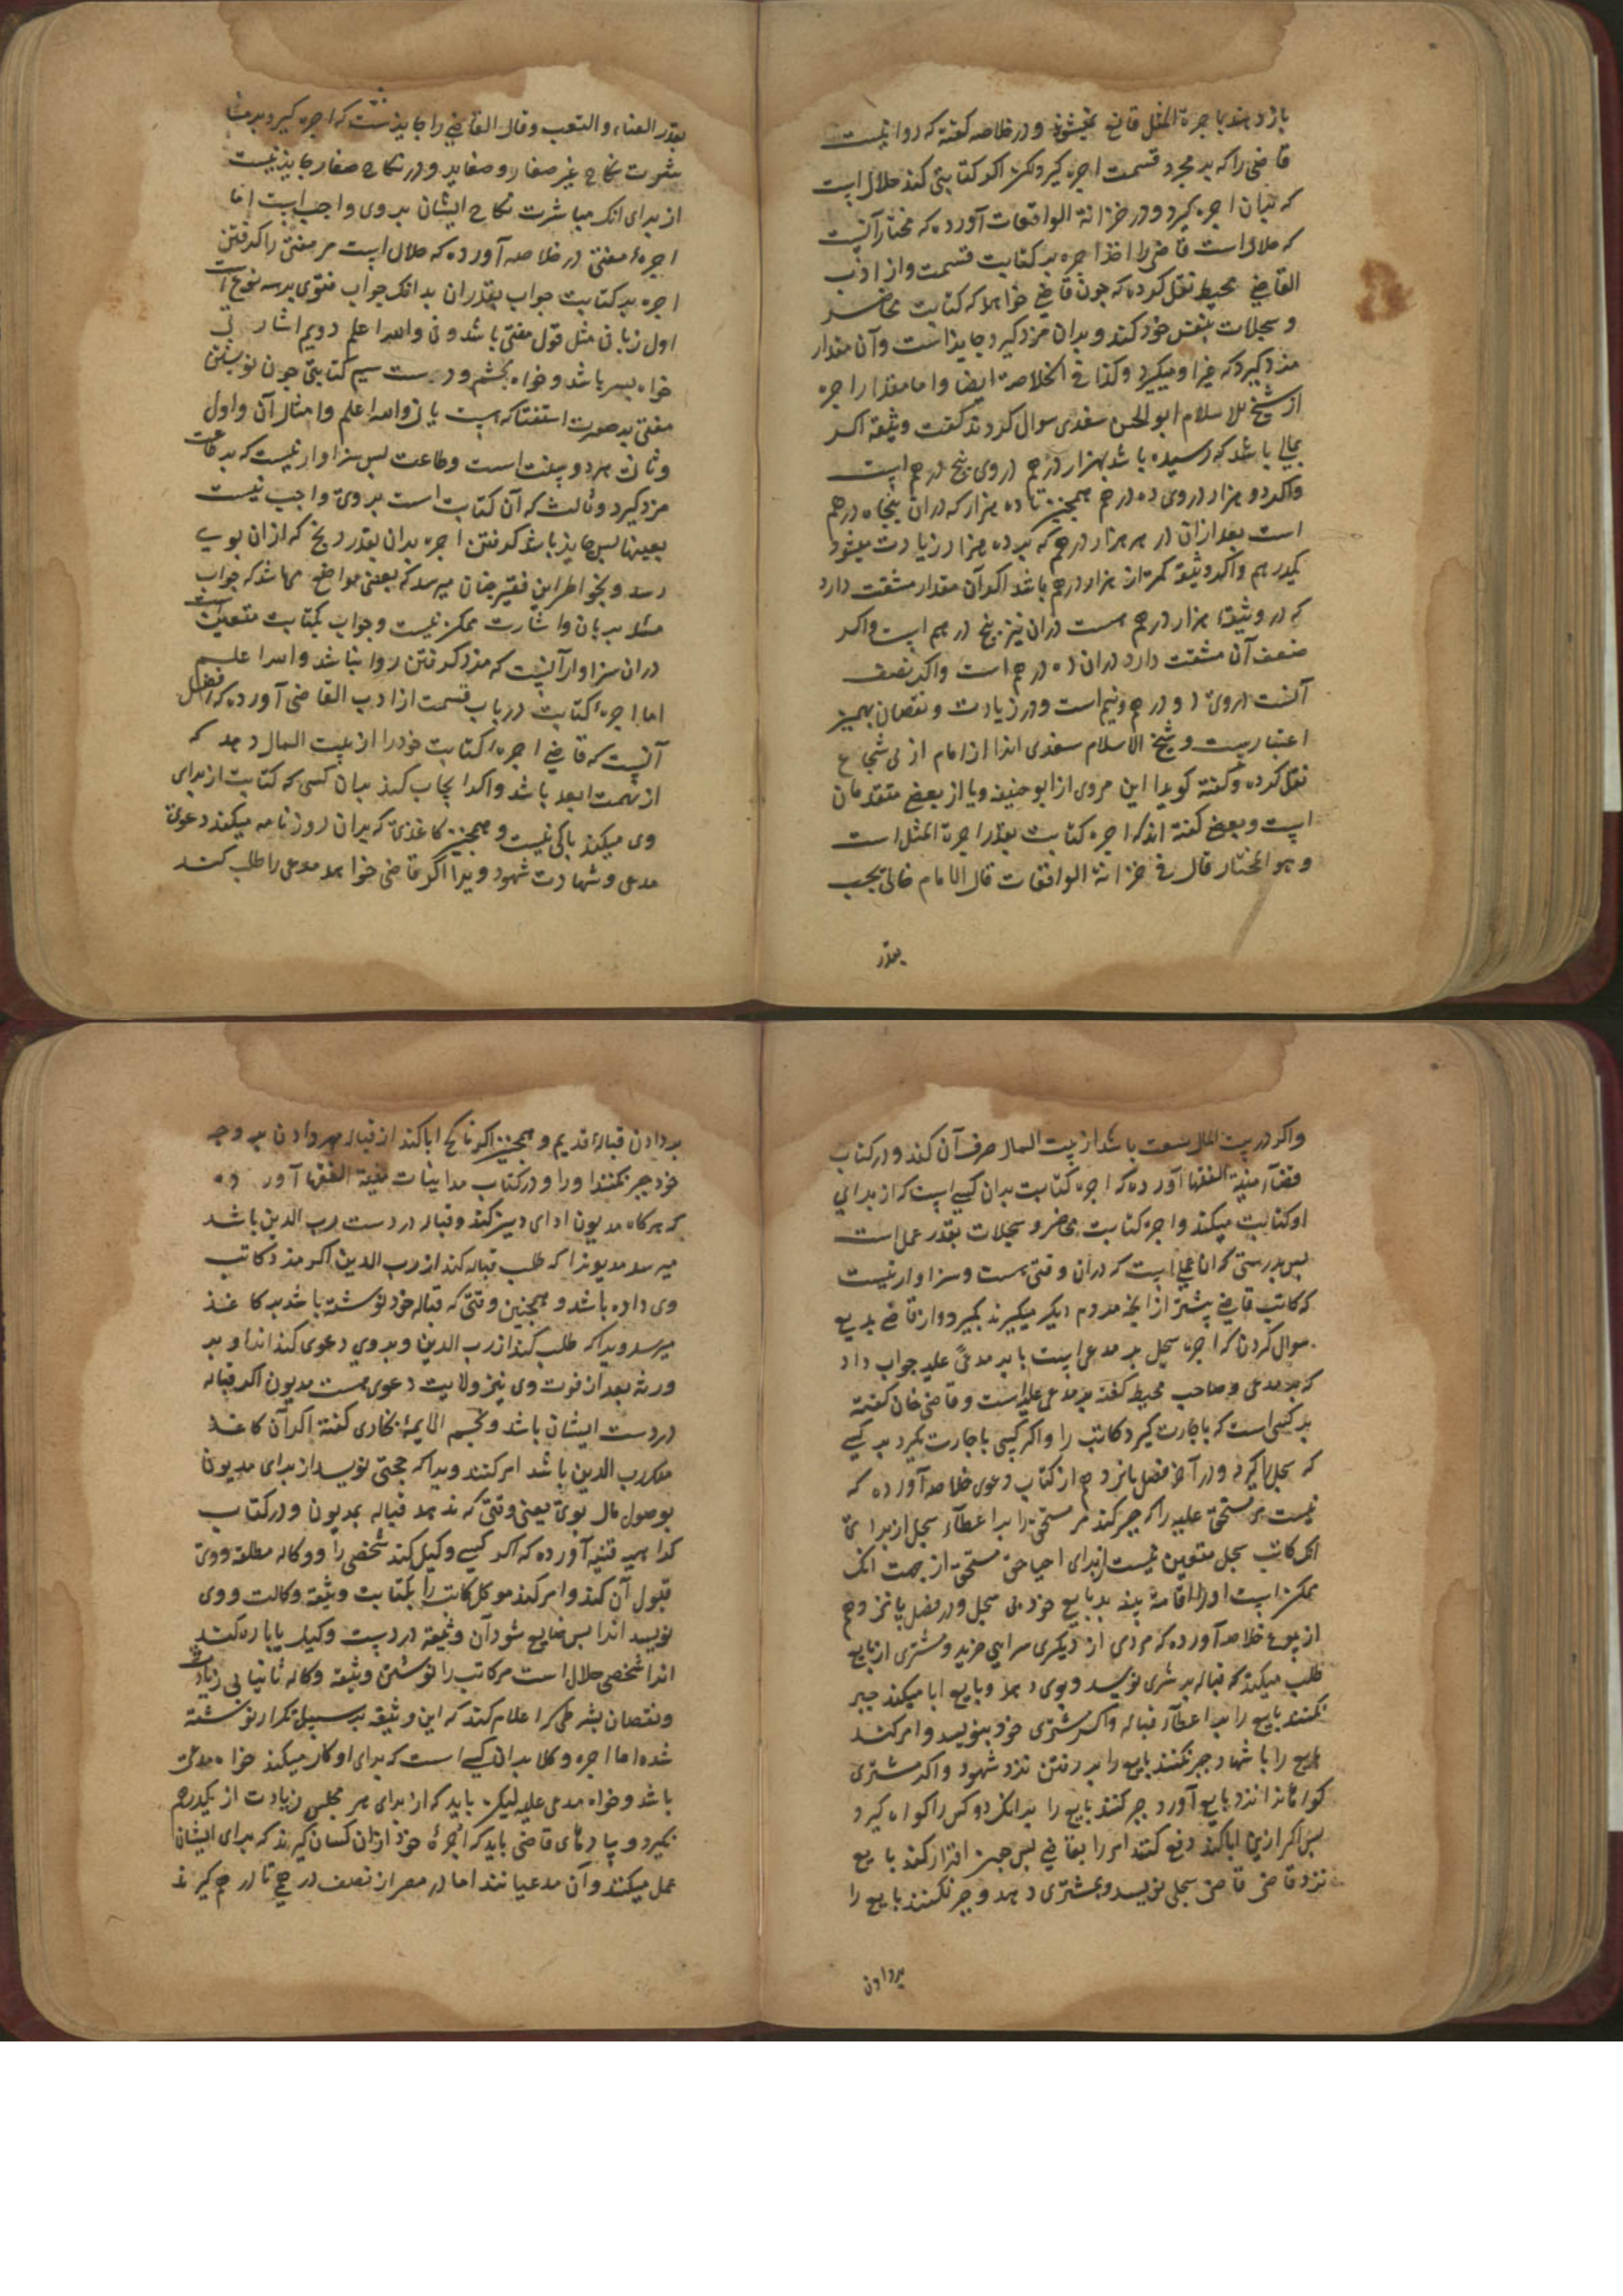 باز دهند با جرة المثل قانع نمیشوند و در خلاصه کفته که روا نیست
قاضی را که بر مجرد قسمت اجره کیرد لکن اکر کتابتی کند حلال است
که بان اجره کیرد و در خزانة الواقعات آورده که مختار آنست
که حلال است قاضی را اخذ اجره بر کتابت قسمت و از ادب
القاضی محیط نقل کرده که چون قاضی خواهد که کتابت محاضر
و سجلات بنفس خود کند و بدان مزد کیرد جایز است و آن مقدار
مزد کیرد که غیر او میکیرد و کذا فی الخلاصة ایضا و اما مقدار اجره
از شیخ الاسلام ابو الحسن سغدی سوال کردند کفت وثیقه اکر
بمالی باشد که رسیده باشد بهزار درهم در وی پنج درهم است
و اکر دو هزار در وی ده درهم همچنین تا ده هزار که در ان پنجاه درهم
است بعد از ان در هر هزار درهم که بر ده هزار زیادت میشود
یکدرهم و اکر وثیقه کمتر از هزار درهم باشد اکر آن مقدار مشقت دارد
که در وثیقهٔ هزار درهم هست در ان نیز پنج درهم است و اکر
ضعف آن مشقت دارد در ان ده درهم است و اکر نصف
آنست در وی دو درهم و نیم است و در زیادت و نقصان بهمین
اعتبار است و شیخ الاسلام سغدی اینرا از امام ابی شجاع
نقل کرده و کفته کویا این مروی از ابو حنیفه و یا از بعض متقدمان
است و بعض کفته اند که اجره کتابت بقدر اجرة المثل است
و هو المختار قال فی خزانة الواقعات قال الامام خالی یجب
بقدر
بقدر العناء و التعب و قال القاضی را جایز نیست که اجره کیرد بر مبا
شرت نکاح غیر صغار و صغایر و در نکاح صغار جایز نیست
از برای انک مباشرت نکاح ایشان بر وی واجب است اما
اجرهٔ مفتی در خلاصه آورده که حلال است مر مفتی را کرفتن
اجره بر کتابت جواب بقدر ان بدانک جواب فتوی بر سه نوع است
اول زبانی مثل قول مفتی باشد و نی والله اعلم دویم اشارتی
خواه بسر باشد و خواه بچشم و دست سیم کتابتی چون نوشتن
مفتی بر صورت استفتا که هست یا نی والله اعلم و امثال آن و اول
و ثانی هر دو بیفت است و طاعت پس سزاوار نیست که بر طاعت
مزد کیرد و ثالث که آن کتابت است بر وی واجب نیست
بعینها پس جایز باشد کرفتن اجره بدان بقدر رنج که از ان بوی
رسد و بخواطر این فقیر چنان میرسد که بعض مواضع میباشد که جواب
مسئله بزبان و اشارت ممکن نیست و جواب بکتابت متعین است
در ان سزاوار آنست که مزد کرفتن روا نباشد والله اعلم
اما اجرهٔ کتابت در باب قسمت از ادب القاضی آورده که افضل
آنست که قاضی اجرهٔ کتابت خود را از بیت المال دهد که
از تهمت ابعد باشد و اکر ایجاب کند بدان کسی که کتابت از برای
وی میکند باکی نیست و همچنین کاغذی که بدان روزنامه میکند دعوی
مدعی و شهادت شهود ویرا اکر قاضی خواهد مدعی را طلب کند
و اکر در بیت المال وسعت باشد از بیت المال صرف آن کند و در کتاب
قضاء منیة الفقها آورده که اجره کتابت بدان کسی است که از برای
او کتابت میکند و اجره کتابت محاضر و سجلات بقدر عمل است
پس بدرستی که ان عملی است که در ان وقتی هست و سزاوار نیست
که کاتب قاضی بیشتر از انچه مردم دیکر میکیرند بکیرد و از قاضی بدیع
سوال کردند که اجره سجل بر مدعی است یا بر مدعی علیه جواب داد
که بر مدعی و صاحب محیط کفته بر مدعی علیه است و قاضی خان کفته
بر کسی است که باجارت کیرد کاتب را و اکر کسی باجارت نکیرد بر کسی
که سجل را کیرد و در آخر فصل پانزدهم از کتاب دعوی خلاصه آورده که
نیست مر مستحق علیه را که جبر کند مر مستحق را بر اعطاء سجل از برای
انک کاتب سجل متعین نیست از برای احیا حق مستحق از جهت انک
ممکن است او را اقامة بینه بر بایع خود بی سجل و در فصل پانزدهم
از بیوع خلاصه آورده که مردی از دیکری سرایی خرید و مشتری از بایع
طلب میکند که قباله بر شری نویسد و بوی دهد و بایع ابا میکند جبر
نکنند بایع را بر اعطاء قباله و اکر مشتری خود بنویسد و امر کند
بایع را با شهاد جبر نکنند بایع را بر رفتن نزد شهود و اکر مشتری
کواهانرا نزد بایع آورد جبر کنند بایع را بر انک دو کس را کواه کیرد
پس اکر ازین ابا کند رفع کنند امر را بقاضی پس چون اقرار کند بایع
نزد قاضی قاضی سجلی نویسد و بمشتری دهد و جبر نکنند بایع را
بر دادن
بر دادن قبالهٔ قدیم و همچنین اکر ناکح ابا کند از قباله مهر دادن بر وجه
خود جبر نکنند او را و در کتاب مداینات منیة الفقها آورده
که هرکاه مدیون ادای دین کند و قباله در دست رب الدین باشد
میرسد مدیونرا که طلب قباله کند از رب الدین اکر مزد کاتب
وی داده باشد و همچنین وقتی که قباله خود نوشته باشد بر کاغذ
میرسد ویرا که طلب کند از رب الدین و بر وی دعوی کند انرا و بر
ورثه بعد از فوت وی نیز ولایت دعوی هست مدیون اکر قباله
در دست ایشان باشد و نجم الایمهٔ بخاری کفته اکر آن کاغذ
ملک رب الدین باشد امر کنند ویرا که حجتی نویسد از برای مدیون
بوصول مال بوی یعنی وقتی که ندهد قباله بمدیون و در کتاب
کراهیه قنیه آورده که اکر کسی وکیل کند شخصی را و وکاله مطلقه و وی
قبول آن کند و امر کند موکل کاتب را بکتابت وثیقهٔ وکالت و وی
نویسد انرا پس ضایع شود آن وثیقه در دست وکیل یا پاره کند
انرا شخصی حلال است مر کاتب را نوشتن وثیقه وکاله ثانیا بی زیادت
و نقصان بشرطی که اعلام کند که این وثیقه بر سبیل تکرار نوشته
شده اما اجره وکلا بدان کسی است که برای او کار میکند خواه مدعی
باشد و خواه مدعی علیه لیکن باید که از برای هر مجلس زیادت از یکدرهم
نکیرد و پیادهای قاضی باید که اجرهٔ خود از ان کسان کیرند که برای ایشان
عمل میکنند و آن مدعیانند اما در مصر از نصف درهم تا درهم کیرند